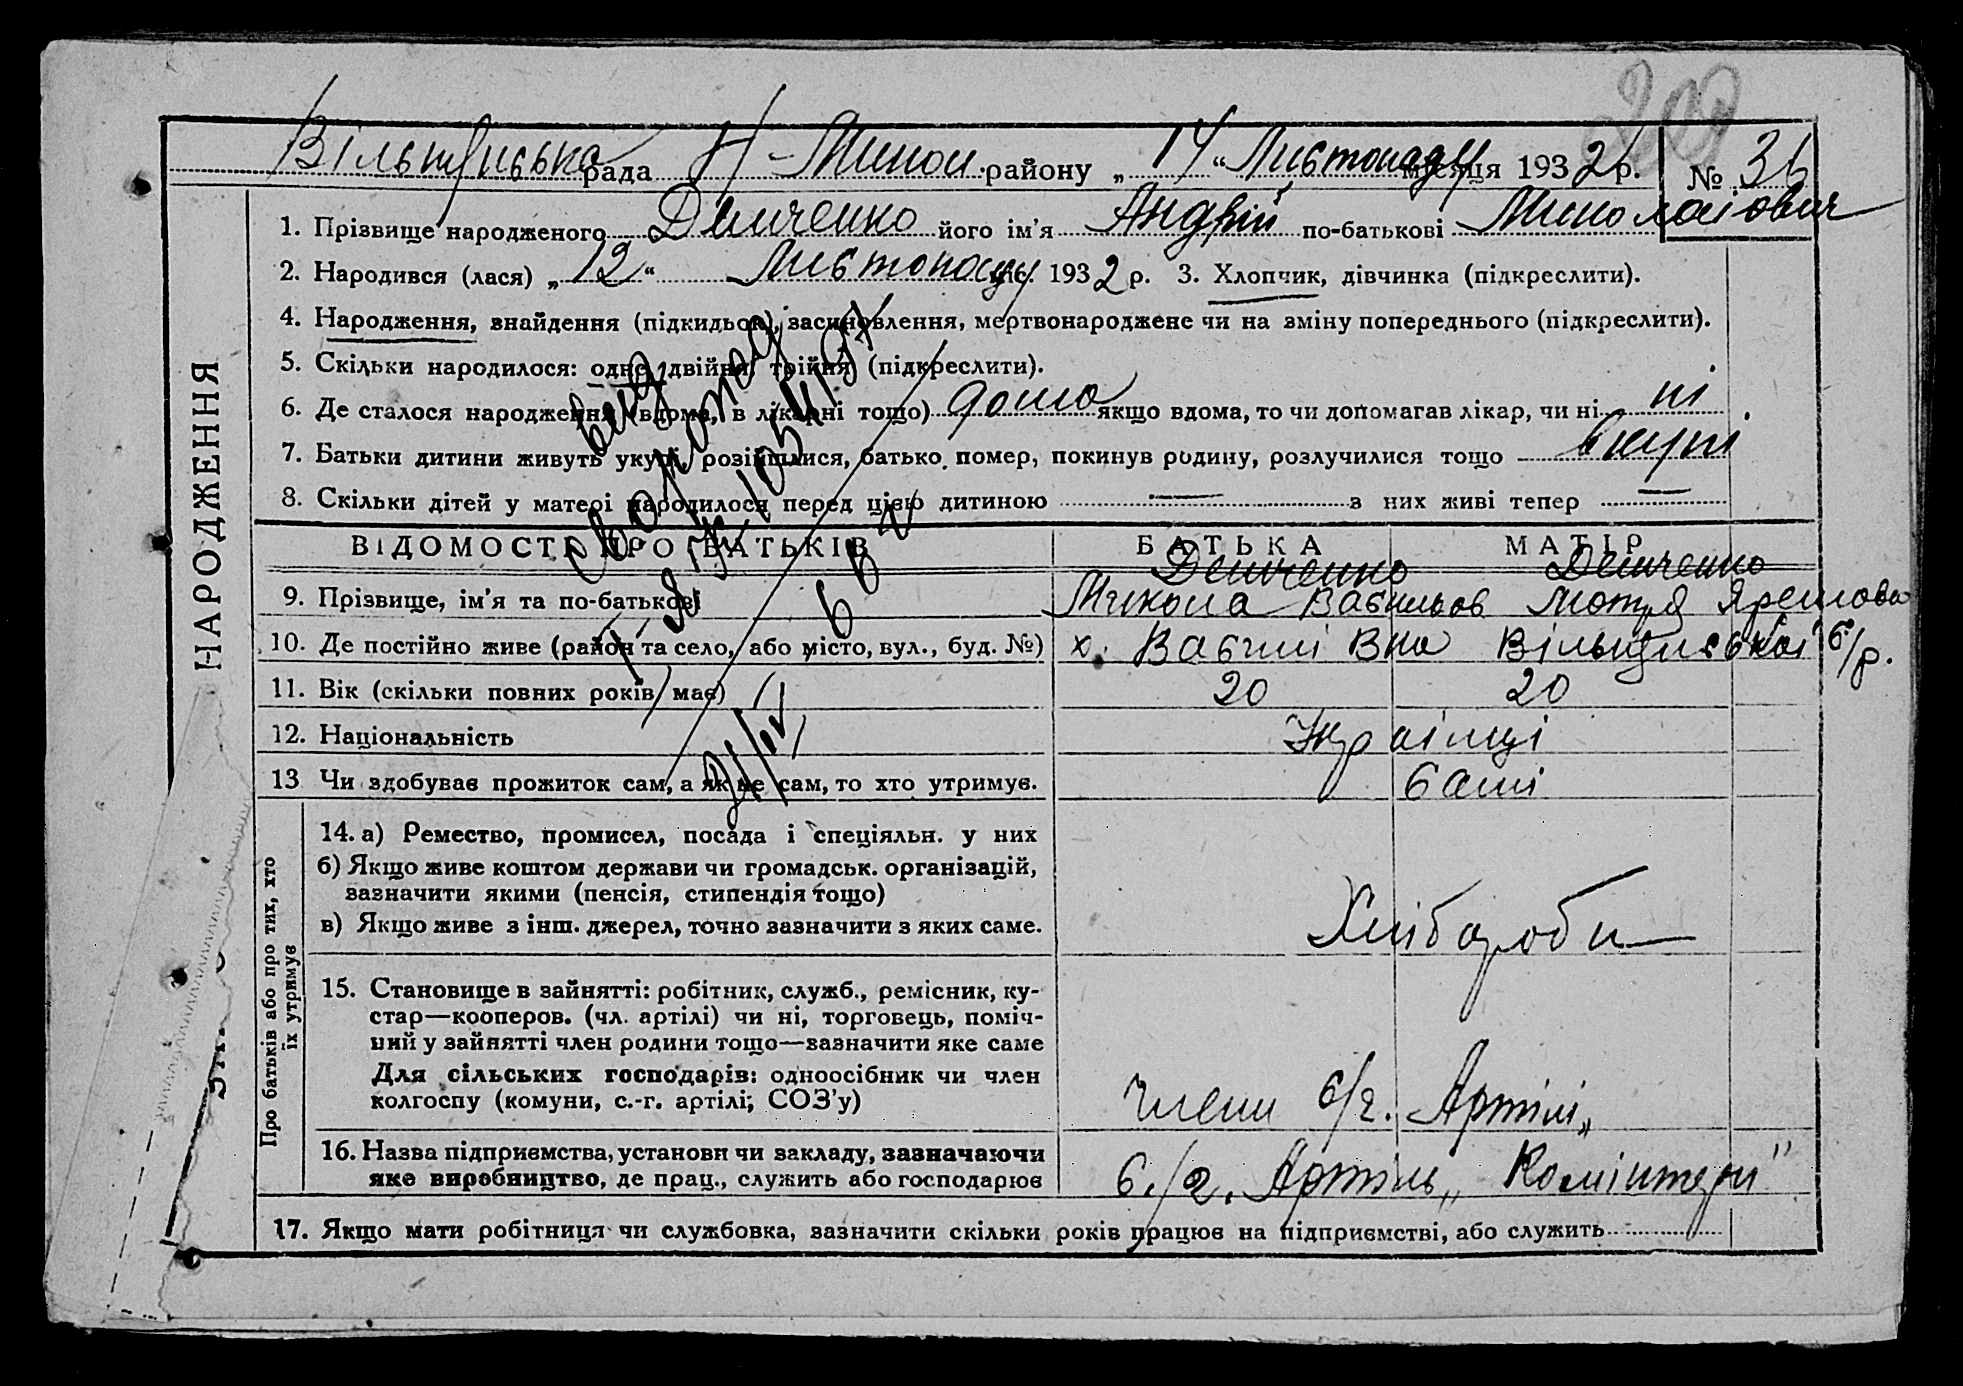 рада Н-Микол. району „ 14 “ Листопаду місяця 1932 р. № 36
1. Прізвище народженого Демченко його ім'я Андрій по-батькові Миколайович
2. Народився (лася) „ 12 “ Листопаду міс. 1932 р. 3. Хлопчик, дівчинка (підкреслити).
4. Народження, знайдення (підкидьок), засиновлення, мертвонароджене чи на зміну попереднього (підкреслити).
5. Скільки народилося: одно, двійня, трійня (підкреслити).
6. Де сталося народження (вдома, в лікарні тощо) дома якщо вдома, то чи допомагав лікар, чи ні ні
7. Батьки дитини живуть укупі, розійшлися, батько помер, покинув родину, розлучилися тощо вкупі
8. Скільки дітей у матері народилося перед цією дитиною — з них живі тепер —
НАРОДЖЕННЯ
ВІДОМОСТІ ПРО БАТЬКІВ БАТЬКА МАТІР
Демченко Демченко
9. Прізвище, ім'я та по-батькові Микола Васильов Мотря
10. Де постійно живе (район та село, або місто, вул., буд. №) х. с/р.
11. Вік (скільки повних років має) 20 20
12. Національність Українці
13 Чи здобуває прожиток сам, а як не сам, то хто утримує. сами
Про батьків або про тих, хто їх утримує
14. а) Ремество, промисел, посада і спеціяльн. у них
б) Якщо живе коштом держави чи громадськ. організацій,
зазначити якими (пенсія, стипендія тощо)
в) Якщо живе з інш. джерел, точно зазначити з яких саме.
Хлібароби
15. Становище в зайнятті: робітник, служб., ремісник, ку-
стар—кооперов. (чл. артілі) чи ні, торговець, поміч-
ний у зайнятті член родини тощо—зазначити яке саме
Для сільських господарів: одноосібник чи член
колгоспу (комуни, с.-г. артілі, СОЗ'у)
Члени с/г. Артілі
16. Назва підприємства, установи чи закладу, зазначаючи
яке виробництво, де прац., служить або господарює
с./г. Артіль „Комінтерн"
17. Якщо мати робітниця чи службовка, зазначити скільки років працює на підприємстві, або служить